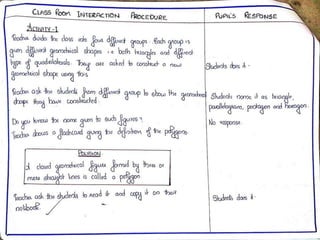 CLASS ROOM INTERACTION PROCEDURE
PUPIL'S RESPONSE
ACTIVITY-1
Teacher divide the class into four different groups. Each group is
given different geometrical shapes i.e both triangles and different
type of quadrilaterals. They are asked to construct a new
geometrical shape using this
Students does it.
Teacher ask the students from different group to show the geometrical
shape they have constructed
Students name it as triangle,
parallelogram, pentagon and hexagon.
Do you know the name given to such figures?
No response.
Teacher shows a flashcard giving the definition of the polygon.
POLYGON
A closed geometrical figure formed by three or
more straight lines is called a polygon
Teacher ask the students to read it and copy it on their
notebook.
Students does it.